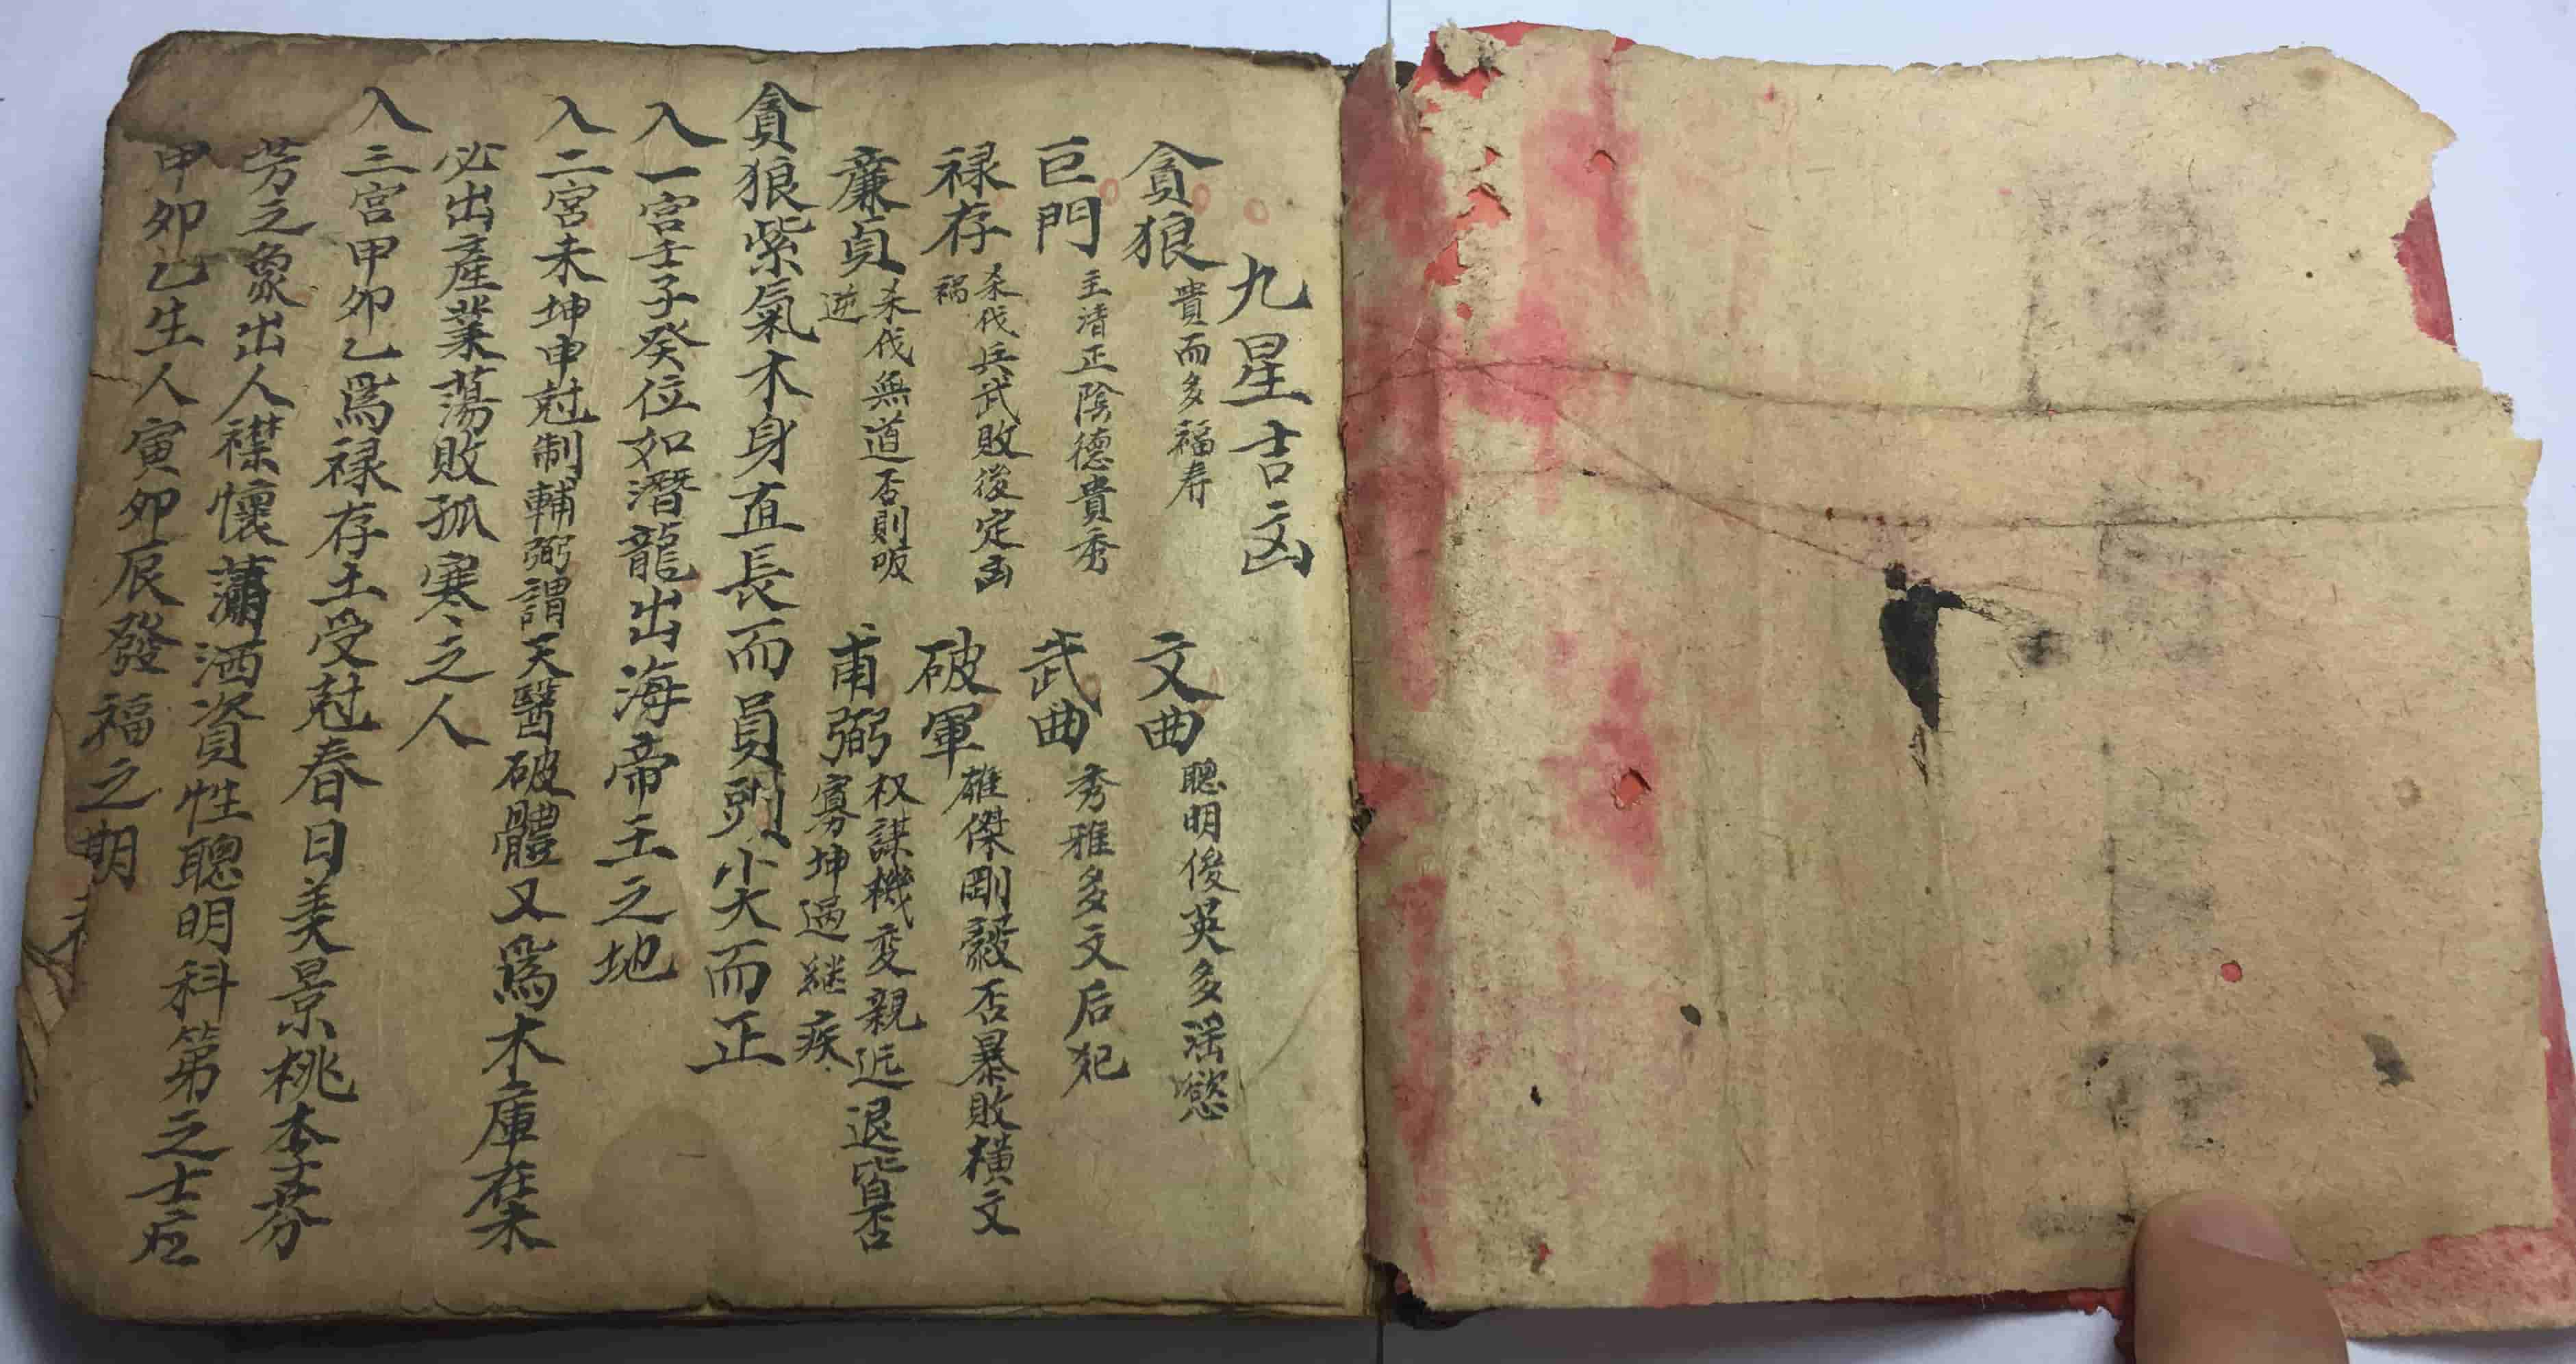 九星吉凶
貪狼 貴而多福寿 文曲 聰明俊英多滛慾
巨門 主清正陰德貴秀 武曲 秀雅多文后犯
禄存 杀伐兵武敗後定凶禍 破軍 雄傑剛毅否暴敗横文
亷貞 杀伐無道否則叛逆 甫弼 权謀機变親近退皆否寡坤過継疾
貪狼紫氣木身直長而員頭尖而正
入一宮壬子癸位如潛龍出海帝王之地
入二宮未坤申尅制輔弼謂天醫破體又爲木庫在未
必出產業蕩敗孤寒之人
入三宮甲卯乙爲禄存土受尅春日美景桃李芬
芳之象出人襟懷瀟洒資性聰明科第之士应
甲卯乙生人寅卯辰發福之期